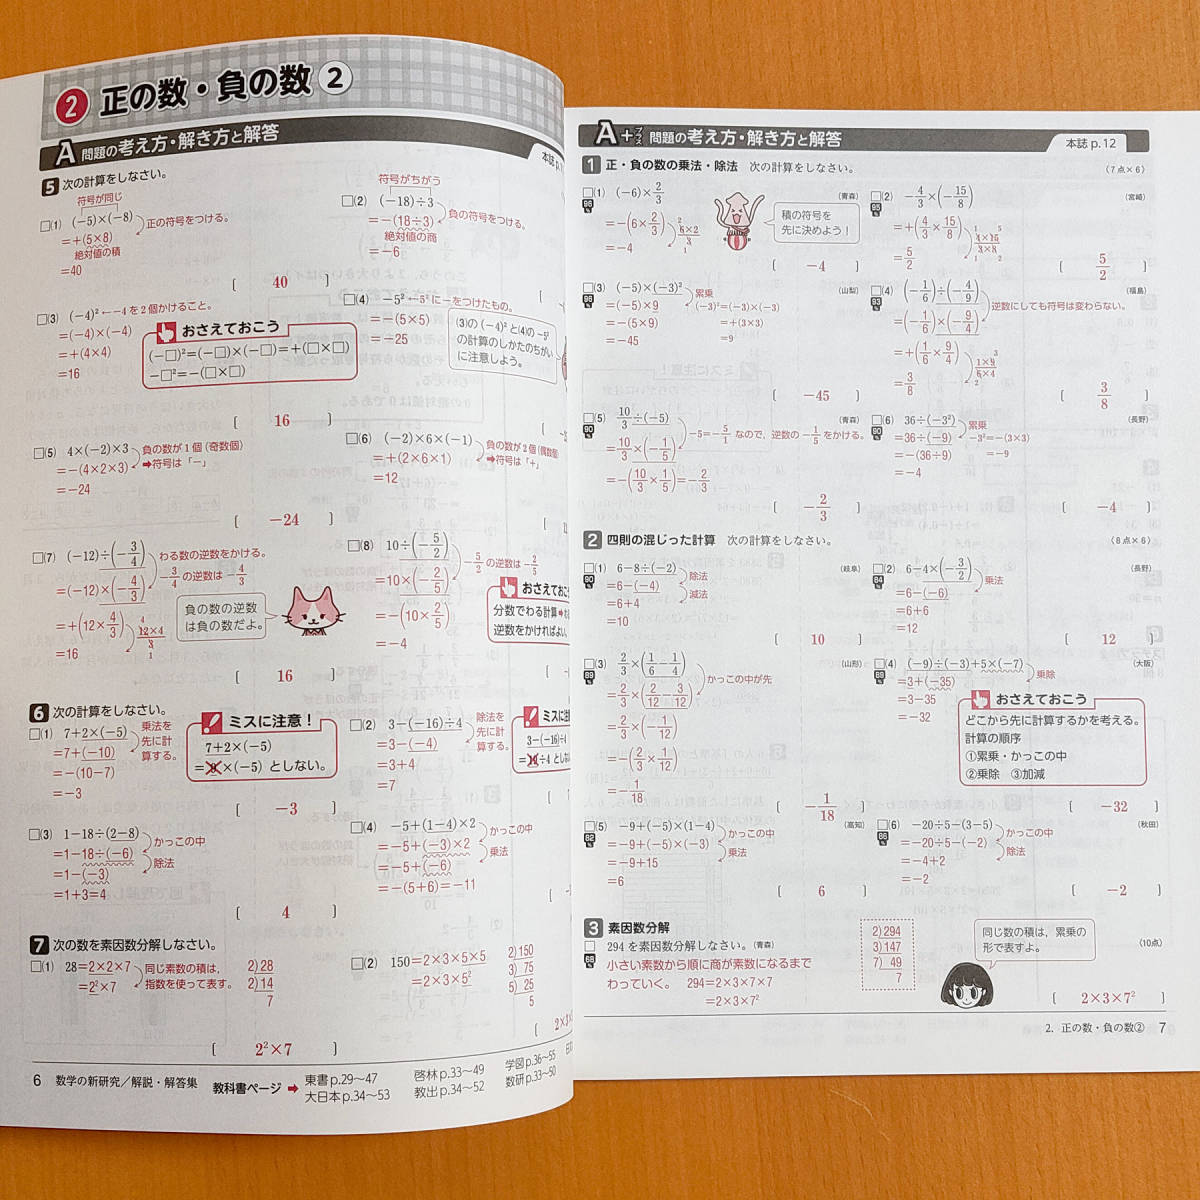 2 正の数・負の数②
A 問題の考え方・解き方と解答
本誌 p.1
5 次の計算をしなさい。
符号が同じ
□(1) (−5)×(−8)
正の符号をつける。
=+(5×8)
絶対値の積
=40
[ 40 ]
符号がちがう
□(2) (−18)÷3
負の符号をつける。
=−(18÷3)
絶対値の商
=−6
□(3) (−4)²←−4を2個かけること。
=(−4)×(−4)
=+(4×4)
=16
おさえておこう
(−□)²=(−□)×(−□)=+(□×□)
−□²=−(□×□)
[ 16 ]
□(4) −5²←5²に−をつけたもの。
=−(5×5)
=−25
(3)の(−4)²と(4)の−5²
の計算のしかたのちがい
に注意しよう。
□(5) 4×(−2)×3
負の数が1個(奇数個)
➡符号は「−」
=−(4×2×3)
=−24
[ −24 ]
□(6) (−2)×6×(−1)
負の数が2個(偶数個)
➡符号は「+」
=+(2×6×1)
=12
□(7) (−12)÷(−3/4)
わる数の逆数をかける。
−3/4の逆数は−4/3
=(−12)×(−4/3)
=+(12×4/3)
=16
負の数の逆数
は負の数だよ。
[ 16 ]
□(8) 10÷(−5/2)
−5/2の逆数は−2/5
=10×(−2/5)
=−(10×2/5)
=−4
おさえておこ
分数でわる計算➡
逆数をかければよい。
6 次の計算をしなさい。
□(1) 7+2×(−5)
乗法を
先に計
算する。
=7+(−10)
=−(10−7)
=−3
ミスに注意!
7+2×(−5)
=9×(−5) としない。
[ −3 ]
□(2) 3−(−16)÷4
除法を
先に計
算する。
=3−(−4)
=3+4
=7
ミスに注
3−(−16)÷4
□(3) 1−18÷(2−8)
かっこの中
=1−18÷(−6)
除法
=1−(−3)
=1+3=4
[ 4 ]
□(4) −5+(1−4)×2
かっこの中
=−5+(−3)×2
乗法
=−5+(−6)
=−(5+6)=−11
7 次の数を素因数分解しなさい。
□(1) 28=2×2×7
=2²×7
同じ素数の積は,
指数を使って表す。
2)28
2)14
7
[ 2²×7 ]
□(2) 150=2×3×5×5
=2×3×5²
2)150
3) 75
5) 25
5
6 数学の新研究/解説・解答集
教科書ページ ➡
東書p.29〜47
大日本p.34〜53
啓林p.33〜49
教出p.34〜52
学図p.36〜55
数研p.33〜50
A+プラス 問題の考え方・解き方と解答
本誌 p.12
1 正・負の数の乗法・除法 次の計算をしなさい。
(7点×6)
□(1) (−6)×2/3
(青森)
96%
=−(6×2/3)
=−4
積の符号を
先に決めよう!
[ −4 ]
□(2) −4/3×(−15/8)
(宮崎)
95%
=+(4/3×15/8)
=5/2
[ 5/2 ]
□(3) (−5)×(−3)²
(山梨)
累乗
=(−5)×9
(−3)²=(−3)×(−3)
=−(5×9)
=+(3×3)
=−45
=9
[ −45 ]
□(4) (−1/6)÷(−4/9)
(福島)
93%
逆数にしても符号は変わらない。
=(−1/6)×(−9/4)
=+(1/6×9/4)
=3/8
[ 3/8 ]
□(5) 10/3÷(−5)
(青森)
90%
−5=−5/1なので,逆数の−1/5をかける。
=10/3×(−1/5)
=−(10/3×1/5)=−2/3
[ −2/3 ]
□(6) 36÷(−3²)
(長野)
90%
累乗
=36÷(−9)
−3²=−(3×3)
=−(36÷9)
=−9
=−4
[ −4 ]
2 四則の混じった計算 次の計算をしなさい。
(8点×6)
□(1) 6−8÷(−2)
(岐阜)
90%
除法
=6−(−4)
減法
=6+4
=10
[ 10 ]
□(2) 6−4×(−3/2)
(長野)
84%
乗法
=6−(−6)
=6+6
=12
[ 12 ]
□(3) 2/3×(1/6−1/4)
(山形)
89%
かっこの中が先
=2/3×(2/12−3/12)
=2/3×(−1/12)
=−(2/3×1/12)
=−1/18
[ −1/18 ]
□(4) (−9)÷(−3)+5×(−7)
(大阪)
乗除
=3+(−35)
=3−35
=−32
おさえておこう
どこから先に計算するかを考える。
計算の順序
①累乗・かっこの中
②乗除 ③加減
[ −32 ]
□(5) −9+(−5)×(1−4)
(高知)
82%
かっこの中
=−9+(−5)×(−3)
乗法
=−9+15
=6
[ 6 ]
□(6) −20÷5−(3−5)
(秋田)
86%
かっこの中
=−20÷5−(−2)
除法
=−4+2
=−2
[ −2 ]
3 素因数分解
□ 294を素因数分解しなさい。(青森)
68%
小さい素数から順に商が素数になるまで
わっていく。 294=2×3×7×7
=2×3×7²
2)294
3)147
7) 49
7
同じ数の積は,累乗の
形で表すよ。
(10点)
[ 2×3×7² ]
2. 正の数・負の数② 7